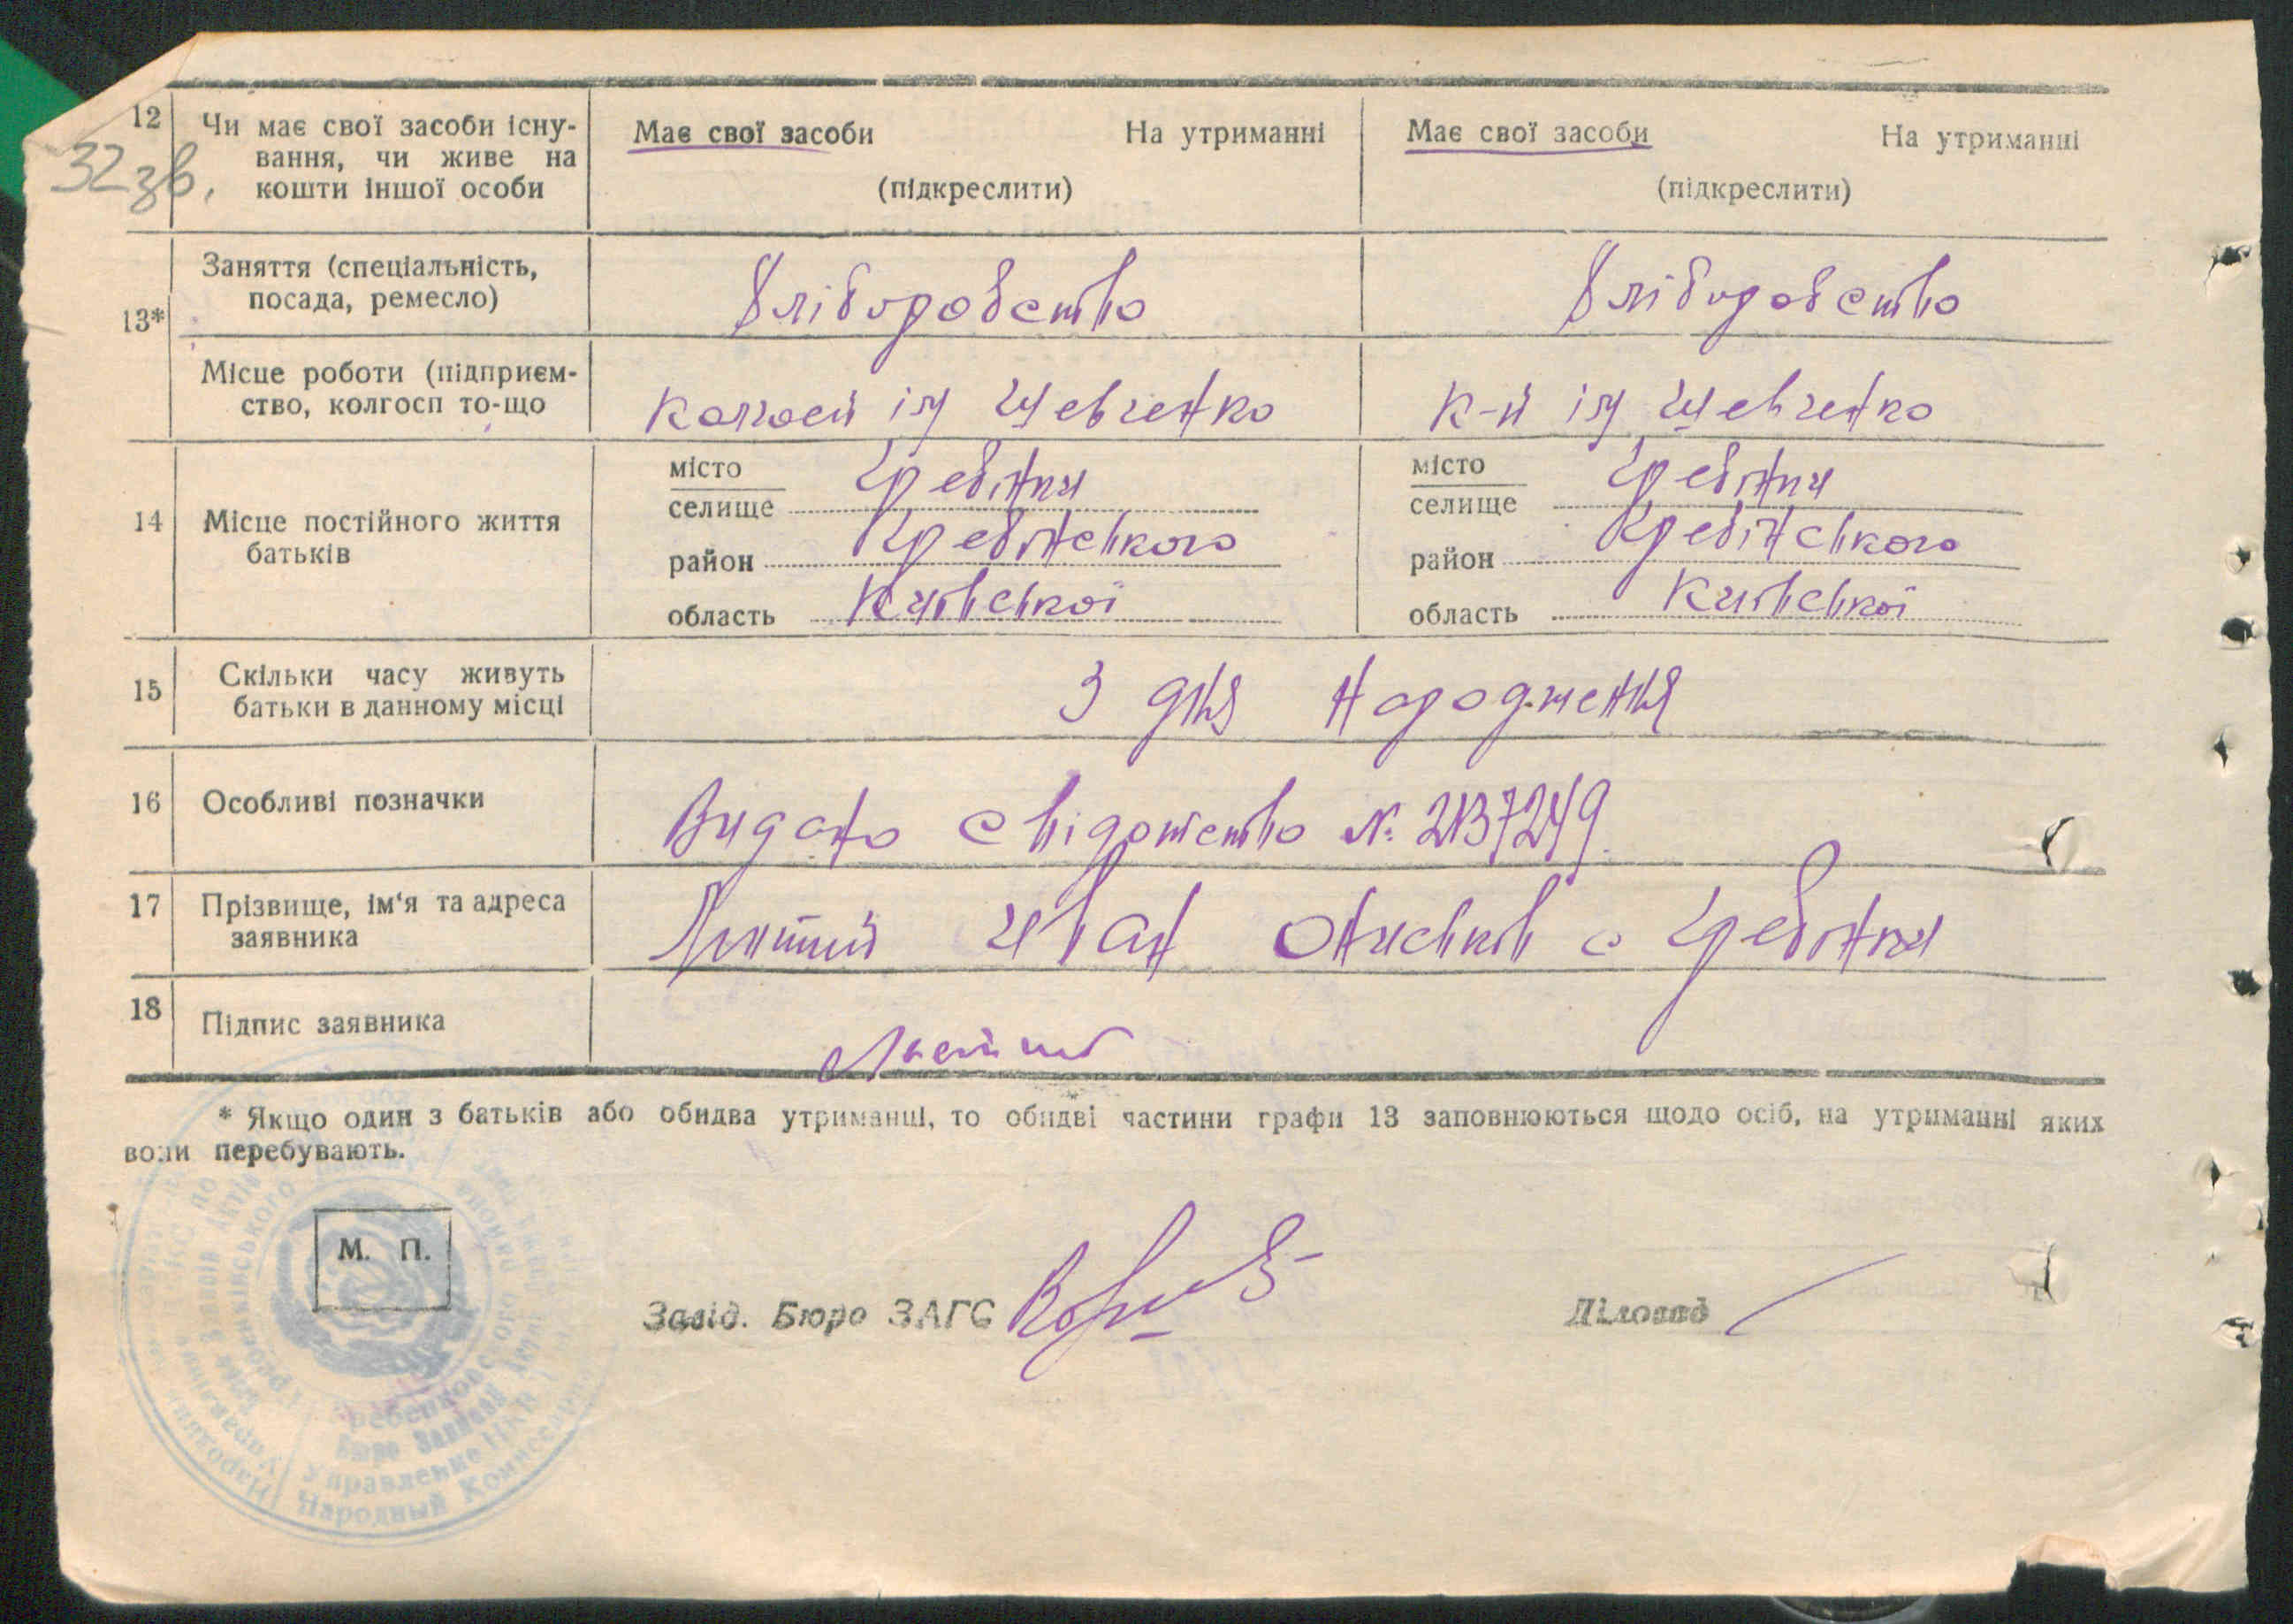 12 Чи має свої засоби існу- Має свої засоби На утриманні Має свої засоби На утриманні
32 зв. вання, чи живе на
кошти іншої особи (підкреслити) (підкреслити)
Заняття (спеціальність,
13* посада, ремесло) Хліборобство Хліборобство
Місце роботи (підприєм-
ство, колгосп то-що ім Шевченко к-п ім Шевченко
14 Місце постійного життя
батьків
місто Гребінки місто Гребінки
селище селище
район Гребінського район Гребінського
область Київської область Київської
15 Скільки часу живуть
батьки в данному місці З дня народження
16 Особливі позначки Видано свідотство №
17 Прізвище, ім'я та адреса
заявника Іван с Гребінки
18 Підпис заявника
* Якщо один з батьків або обидва утриманці, то обидві частини графи 13 заповнюються щодо осіб, на утриманні яких
вони перебувають.
М. П.
Завід. Бюро ЗАГС Діловод
Бюро Записей
Управление НКВД
Народный Комиссариат